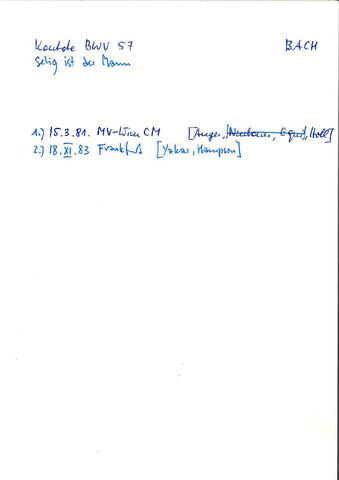 Kantate BWV 57 BACH
Selig ist der Mann
1.) 15.3.81. MV-Wien CM [Auger, Equiluz, Holl]
2.) 18.XI.83 Frankfurt [Yakar, Hampson]